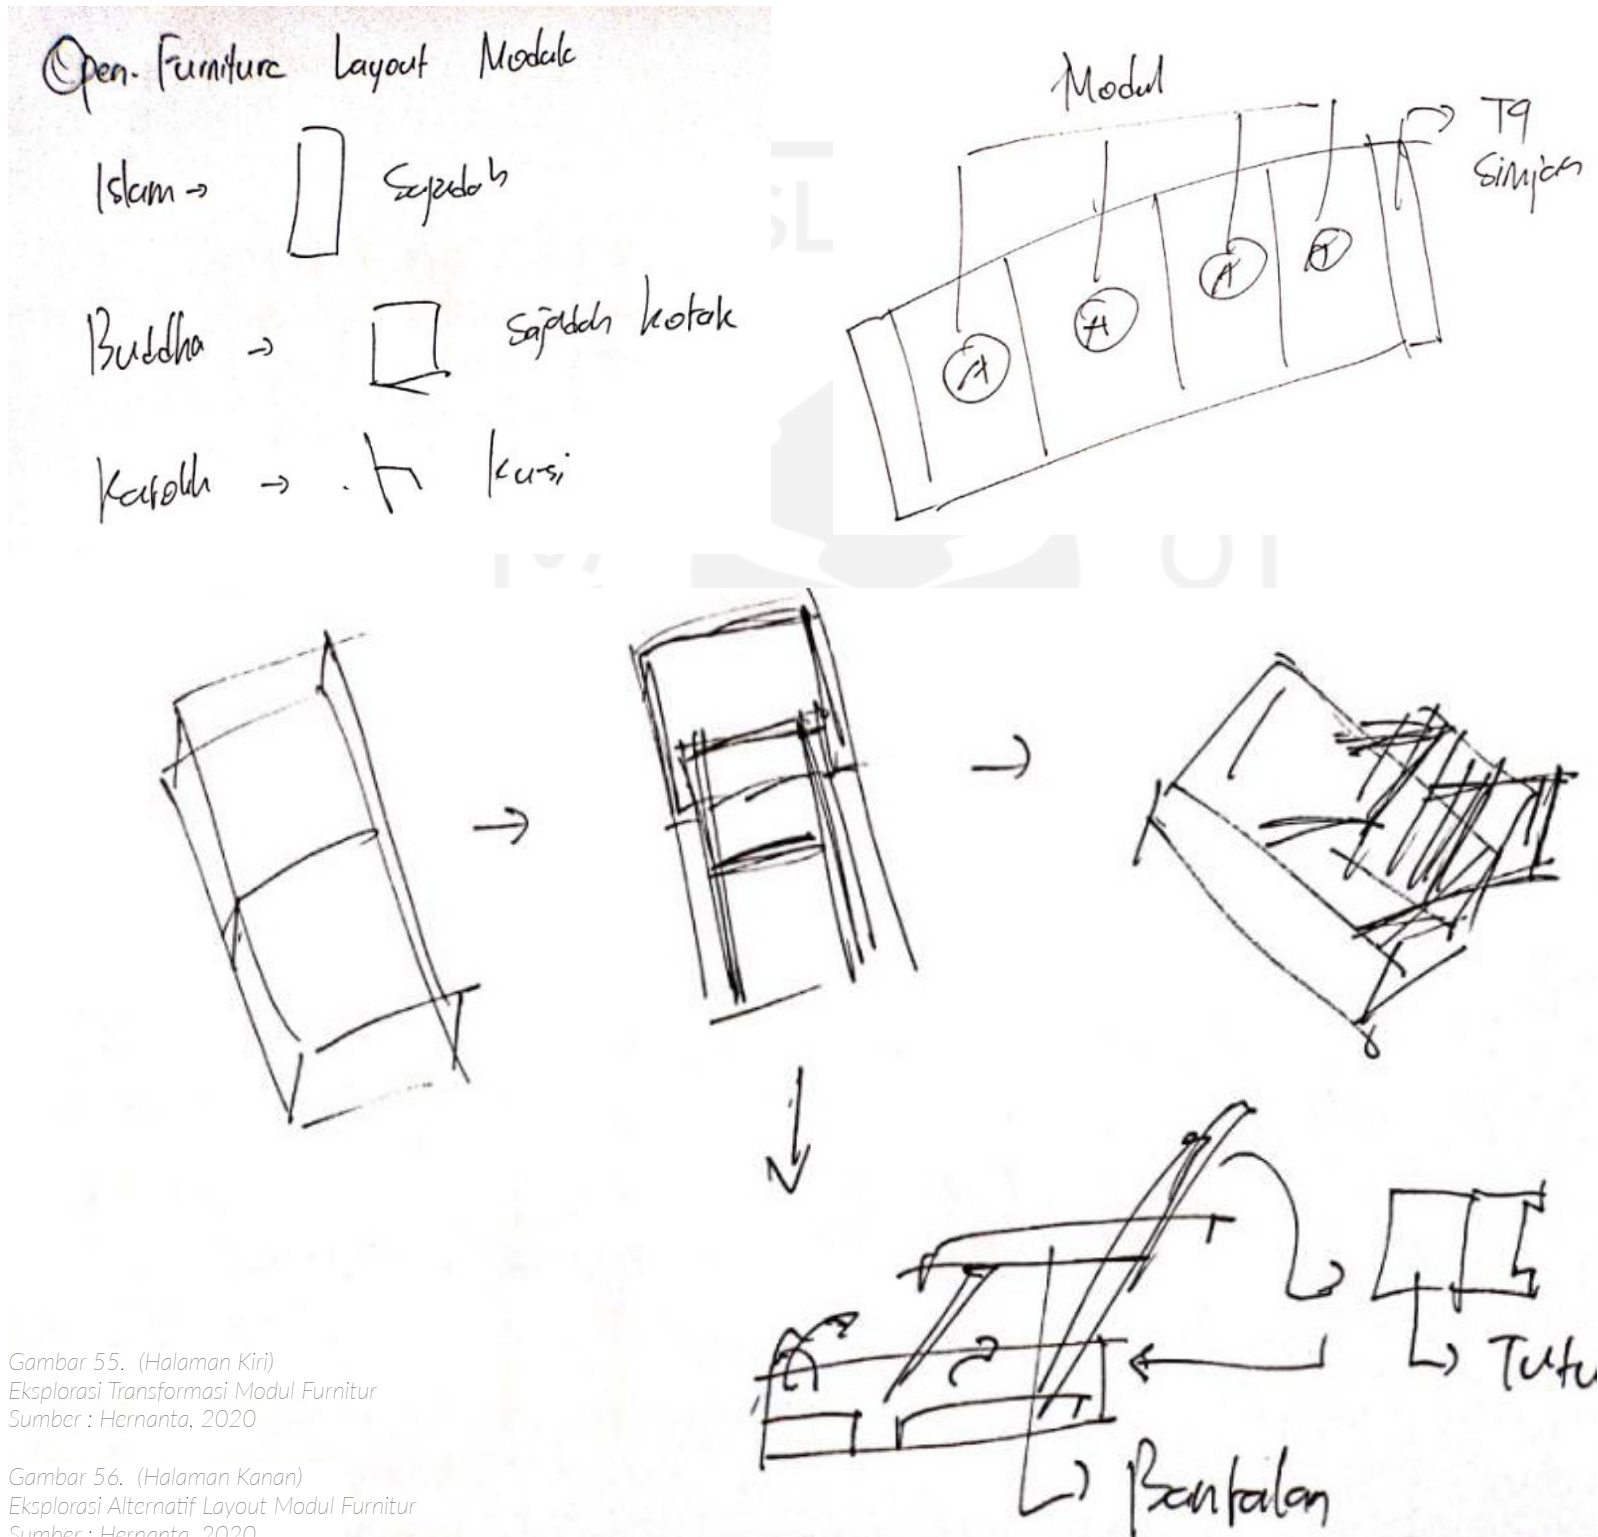 Open. Furniture Layout Module
Islam → Sajadah
Buddha → Sajadah kotak
Katolik → Kursi
Modul
Tq
Simjan
A A A A
Tutu
Bantalan
Gambar 55. (Halaman Kiri)
Eksplorasi Transformasi Modul Furnitur
Sumber : Hernanta, 2020
Gambar 56. (Halaman Kanan)
Eksplorasi Alternatif Layout Modul Furnitur
Sumber : Hernanta, 2020